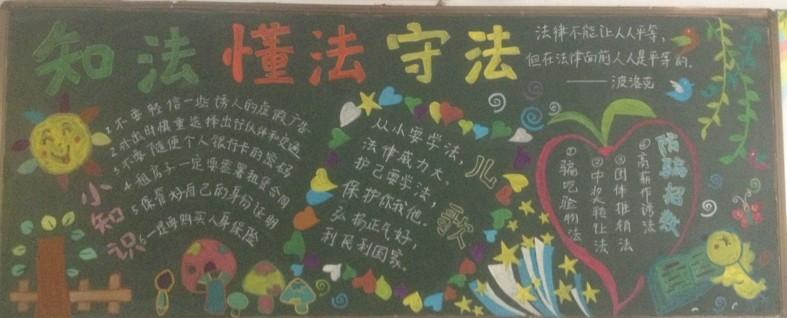 知法懂法守法
法律不能让人人平等，
但在法律面前人人是平等的。
——波洛克
小知识
1.不要轻信一些诱人的虚假广告
2.外出时慎重选择出行伙伴和交通
3.不要随便个人银行卡的密码
4.租房子一定要签署租赁合同
5.保管好自己的身份证明
6.一定要购买人身保险
儿歌
从小要学法，
法律威力大，
护己要学法，
保护你我他。
弘扬正气好，
利民利国家。
防骗招数
①骗吃骗物法
②中奖转让法
③团体推销法
④高薪作诱法